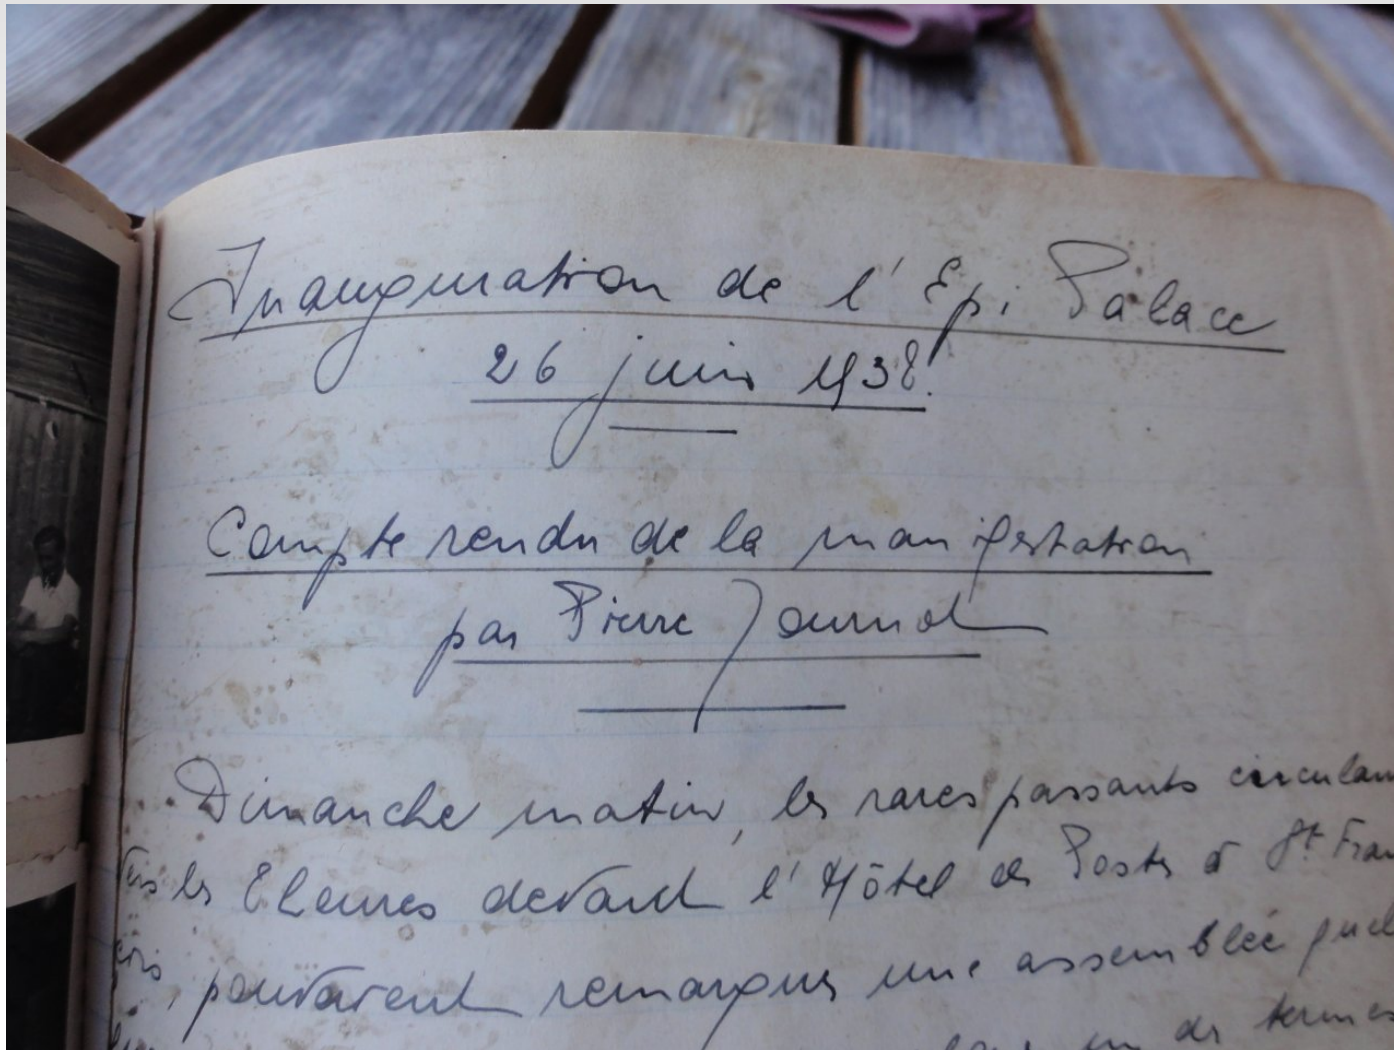 Inauguration de l'Epi Palace
26 juin 1938.
Compte rendu de la manifestation
par Pierre Journot
Dimanche matin, les rares passants circulan
vers les 8 heures devant l'Hôtel des Postes à St Fran
çois, pouvaient remarquer une assemblée quel
des termes